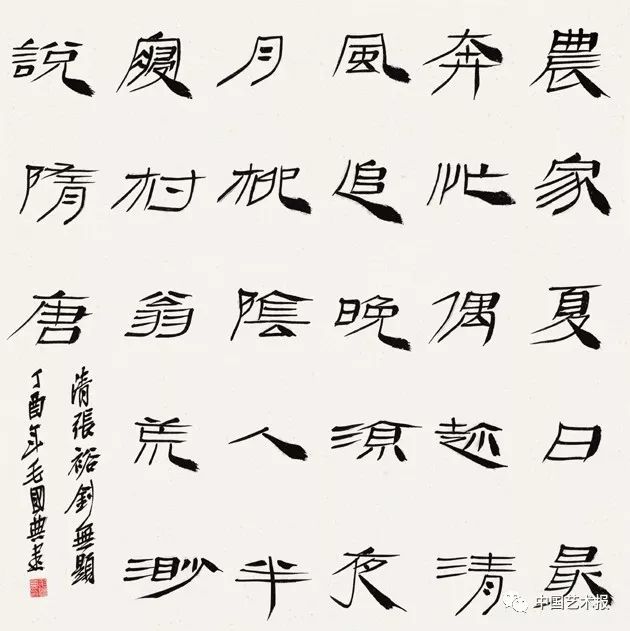 農家夏日最
奔忙偶趂清
風追晚涼夜
月柳陰人半
寢村翁荒渺
說隋唐
清張裕釗無題
丁酉年毛國典書
中国艺术报